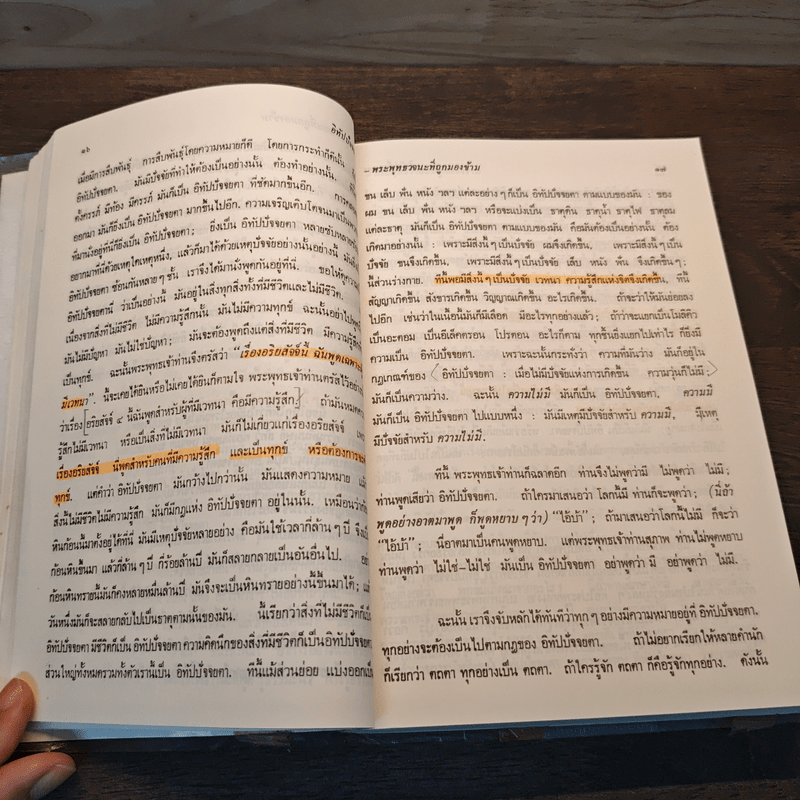 ๑๖
อิทัปปั
เมื่อมีการสืบพันธุ์ การสืบพันธุ์โดยความหมายก็ดี โดยการกระทำก็ดีนั้น
อิทัปปัจจยตา. มันมีปัจจัยที่ทำให้ต้องเป็นอย่างนั้น ต้องทำอย่างนั้น.
ตั้งครรภ์ มีท้อง มีครรภ์ มันก็เป็น อิทัปปัจจยตา ที่ชัดมากขึ้นอีก.
ออกมา มันก็ยิ่งเป็น อิทัปปัจจยตา มากขึ้นไปอีก. ความเจริญเติบโตจนมาเป็น
ที่มานั่งอยู่ที่นี่ก็ยิ่งเป็น อิทัปปัจจยตา; ยิ่งเป็น อิทัปปัจจยตา หลายซับหลาย
อยากมาที่นี่ด้วยเหตุใดเหตุหนึ่ง, แล้วก็มาได้ด้วยเหตุปัจจัยอย่างนั้นอย่างนี้
อิทัปปัจจยตา ซ้อนกันหลาย ๆ ชั้น เราจึงได้มานั่งพูดกันอยู่ที่นี่. ขอให้ดู
อิทัปปัจจยตานี่ ว่าเป็นอย่างนี้ มันอยู่ในสิ่งทุกสิ่งทั้งที่มีชีวิตและไม่มีชีวิต.
เนื่องจากสิ่งที่ไม่มีชีวิต ไม่มีความรู้สึกนั้น มันไม่มีความทุกข์ ฉะนั้นอย่าไป
มันไม่มีปัญหา มันไม่ใช่ปัญหา; มันจะต้องพูดถึงแต่สิ่งที่มีชีวิต มีความรู้สึก
เป็นทุกข์. ฉะนั้นพระพุทธเจ้าท่านจึงตรัสว่า "เรื่องอริยสัจจ์นี้ ฉันพูดเฉพาะ
มีเวทนา". นี่จะเคยได้ยินหรือไม่เคยได้ยินก็ตามใจ พระพุทธเจ้าท่านตรัสไว้อย่าง
ว่าเรื่อง อริยสัจจ์ ๔ นี้ฉันพูดสำหรับผู้ที่มีเวทนา คือมีความรู้สึก. ถ้ามันหมด
รู้สึกไม่มีเวทนา หรือเป็นสิ่งที่ไม่มีเวทนา มันก็ไม่เกี่ยวแก่เรื่องอริยสัจจ์
เรื่องอริยสัจจ์ นี่พูดสำหรับคนที่มีความรู้สึก และเป็นทุกข์ หรือต้องการจะ
ทุกข์. แต่คำว่า อิทัปปัจจยตา มันกว้างไปกว่านั้น มันแสดงความหมาย
สิ่งนี้ไม่มีชีวิตไม่มีความรู้สึก มันก็มีกฎแห่ง อิทัปปัจจยตา อยู่ในนั้น. เหมือนว่า
หินก้อนนี้มาตั้งอยู่ได้ที่นี่ มันมีเหตุปัจจัยหลายอย่าง คือมันใช้เวลากี่ล้าน ๆ ปี
ก้อนหินขึ้นมา แล้วกี่ล้าน ๆ ปี กี่ร้อยล้านปี มันก็สลายกลายเป็นอันอื่นไป.
ก้อนหินทรายนี้มันก็คงหลายหมื่นล้านปี มันจึงจะเป็นหินทรายอย่างนี้ขึ้นมาได้;
วันหนึ่งมันก็จะสลายกลับไปเป็นธาตุตามนั้นของมัน. นี่เรียกว่าสิ่งที่ไม่มีชีวิตก็เป็น
อิทัปปัจจยตา มีชีวิตก็เป็น อิทัปปัจจยตา ความคิดนึกของสิ่งที่มีชีวิตก็เป็นอิทัปปัจจยตา
ส่วนใหญ่ทั้งหมดรวมทั้งตัวเรานี้เป็น อิทัปปัจจยตา. ทีนี้แม้ส่วนย่อย แบ่งออก
– พระพุทธวจนะที่ถูกมองข้าม
๑๗
ขน เล็บ ฟัน หนัง ฯลฯ แต่ละอย่าง ๆ ก็เป็น อิทัปปัจจยตา ตามแบบของมัน : ของ
ผม ขน เล็บ ฟัน หนัง ฯลฯ หรือจะแบ่งเป็น ธาตุดิน ธาตุน้ำ ธาตุไฟ ธาตุลม
แต่ละธาตุ มันก็เป็น อิทัปปัจจยตา ตามแบบของมัน คือมันต้องเป็นอย่างนั้น ต้อง
เกิดมาอย่างนั้น : เพราะมีสิ่งนี้ ๆ เป็นปัจจัย ผมจึงเกิดขึ้น, เพราะมีสิ่งนี้ ๆ เป็น
ปัจจัย ขนจึงเกิดขึ้น, เพราะมีสิ่งนี้ ๆ เป็นปัจจัย เล็บ หนัง ฟัน จึงเกิดขึ้น ๆ;
นี้ส่วนร่างกาย. ทีนี้พอมีสิ่งนี้ ๆ เป็นปัจจัย เวทนา ความรู้สึกแห่งจิตจึงเกิดขึ้น, ทีนี้
สัญญาเกิดขึ้น สังขารเกิดขึ้น วิญญาณเกิดขึ้น อะไรเกิดขึ้น. ถ้าจะว่าให้มันย่อยลง
ไปอีก เช่นว่าในเนื้อนี้มันก็มีเลือด มีอะไรทุกอย่างแล้ว; ถ้าว่าจะแยกเป็นโมลิคิว
เป็นอะตอม เป็นอีเล็คตรอน โปรตอน อะไรก็ตาม ทุกชิ้นยิ่งแยกไปเท่าไร ก็ยิ่งมี
ความเป็น อิทัปปัจจยตา. เพราะฉะนั้นกระทั่งว่า ความที่มันว่าง มันก็อยู่ใน
กฎเกณฑ์ของ อิทัปปัจจยตา : เมื่อไม่มีปัจจัยแห่งการเกิดขึ้น ความวุ่นก็ไม่มี;
มันก็เป็นความว่าง. ฉะนั้น ความไม่มี มันก็เป็น อิทัปปัจจยตา. ความมี
มันก็เป็น อิทัปปัจจยตา ไปแบบหนึ่ง : มันมีเหตุมีปัจจัยสำหรับ ความมี, มีเหตุ
มีปัจจัยสำหรับ ความไม่มี.
ทีนี้ พระพุทธเจ้าท่านก็ฉลาดอีก ท่านจึงไม่พูดว่ามี ไม่พูดว่า ไม่มี;
ท่านพูดเสียว่า อิทัปปัจจยตา. ถ้าใครมาเสนอว่า โลกนี้มี ท่านก็จะพูดว่า; (นี่ถ้า
พูดอย่างอาตมาพูด ก็พูดหยาบ ๆ ว่า) "ไอ้บ้า"; ถ้ามาเสนอว่าโลกนี้ไม่มี ก็จะว่า
"ไอ้บ้า"; นี่อาตมาเป็นคนพูดหยาบ. แต่พระพุทธเจ้าท่านสุภาพ ท่านไม่พูดหยาบ
ท่านพูดว่า ไม่ใช่–ไม่ใช่ มันเป็น อิทัปปัจจยตา อย่าพูดว่า มี อย่าพูดว่า ไม่มี.
ฉะนั้น เราจึงจับหลักได้ทันทีว่าทุก ๆ อย่างมีความหมายอยู่ที่ อิทัปปัจจยตา.
ทุกอย่างจะต้องเป็นไปตามกฎของ อิทัปปัจจยตา. ถ้าไม่อยากเรียกให้หลายคำนัก
ก็เรียกว่า ตถตา ทุกอย่างเป็น ตถตา. ถ้าใครรู้จัก ตถตา ก็คือรู้จักทุกอย่าง. ดังนั้น